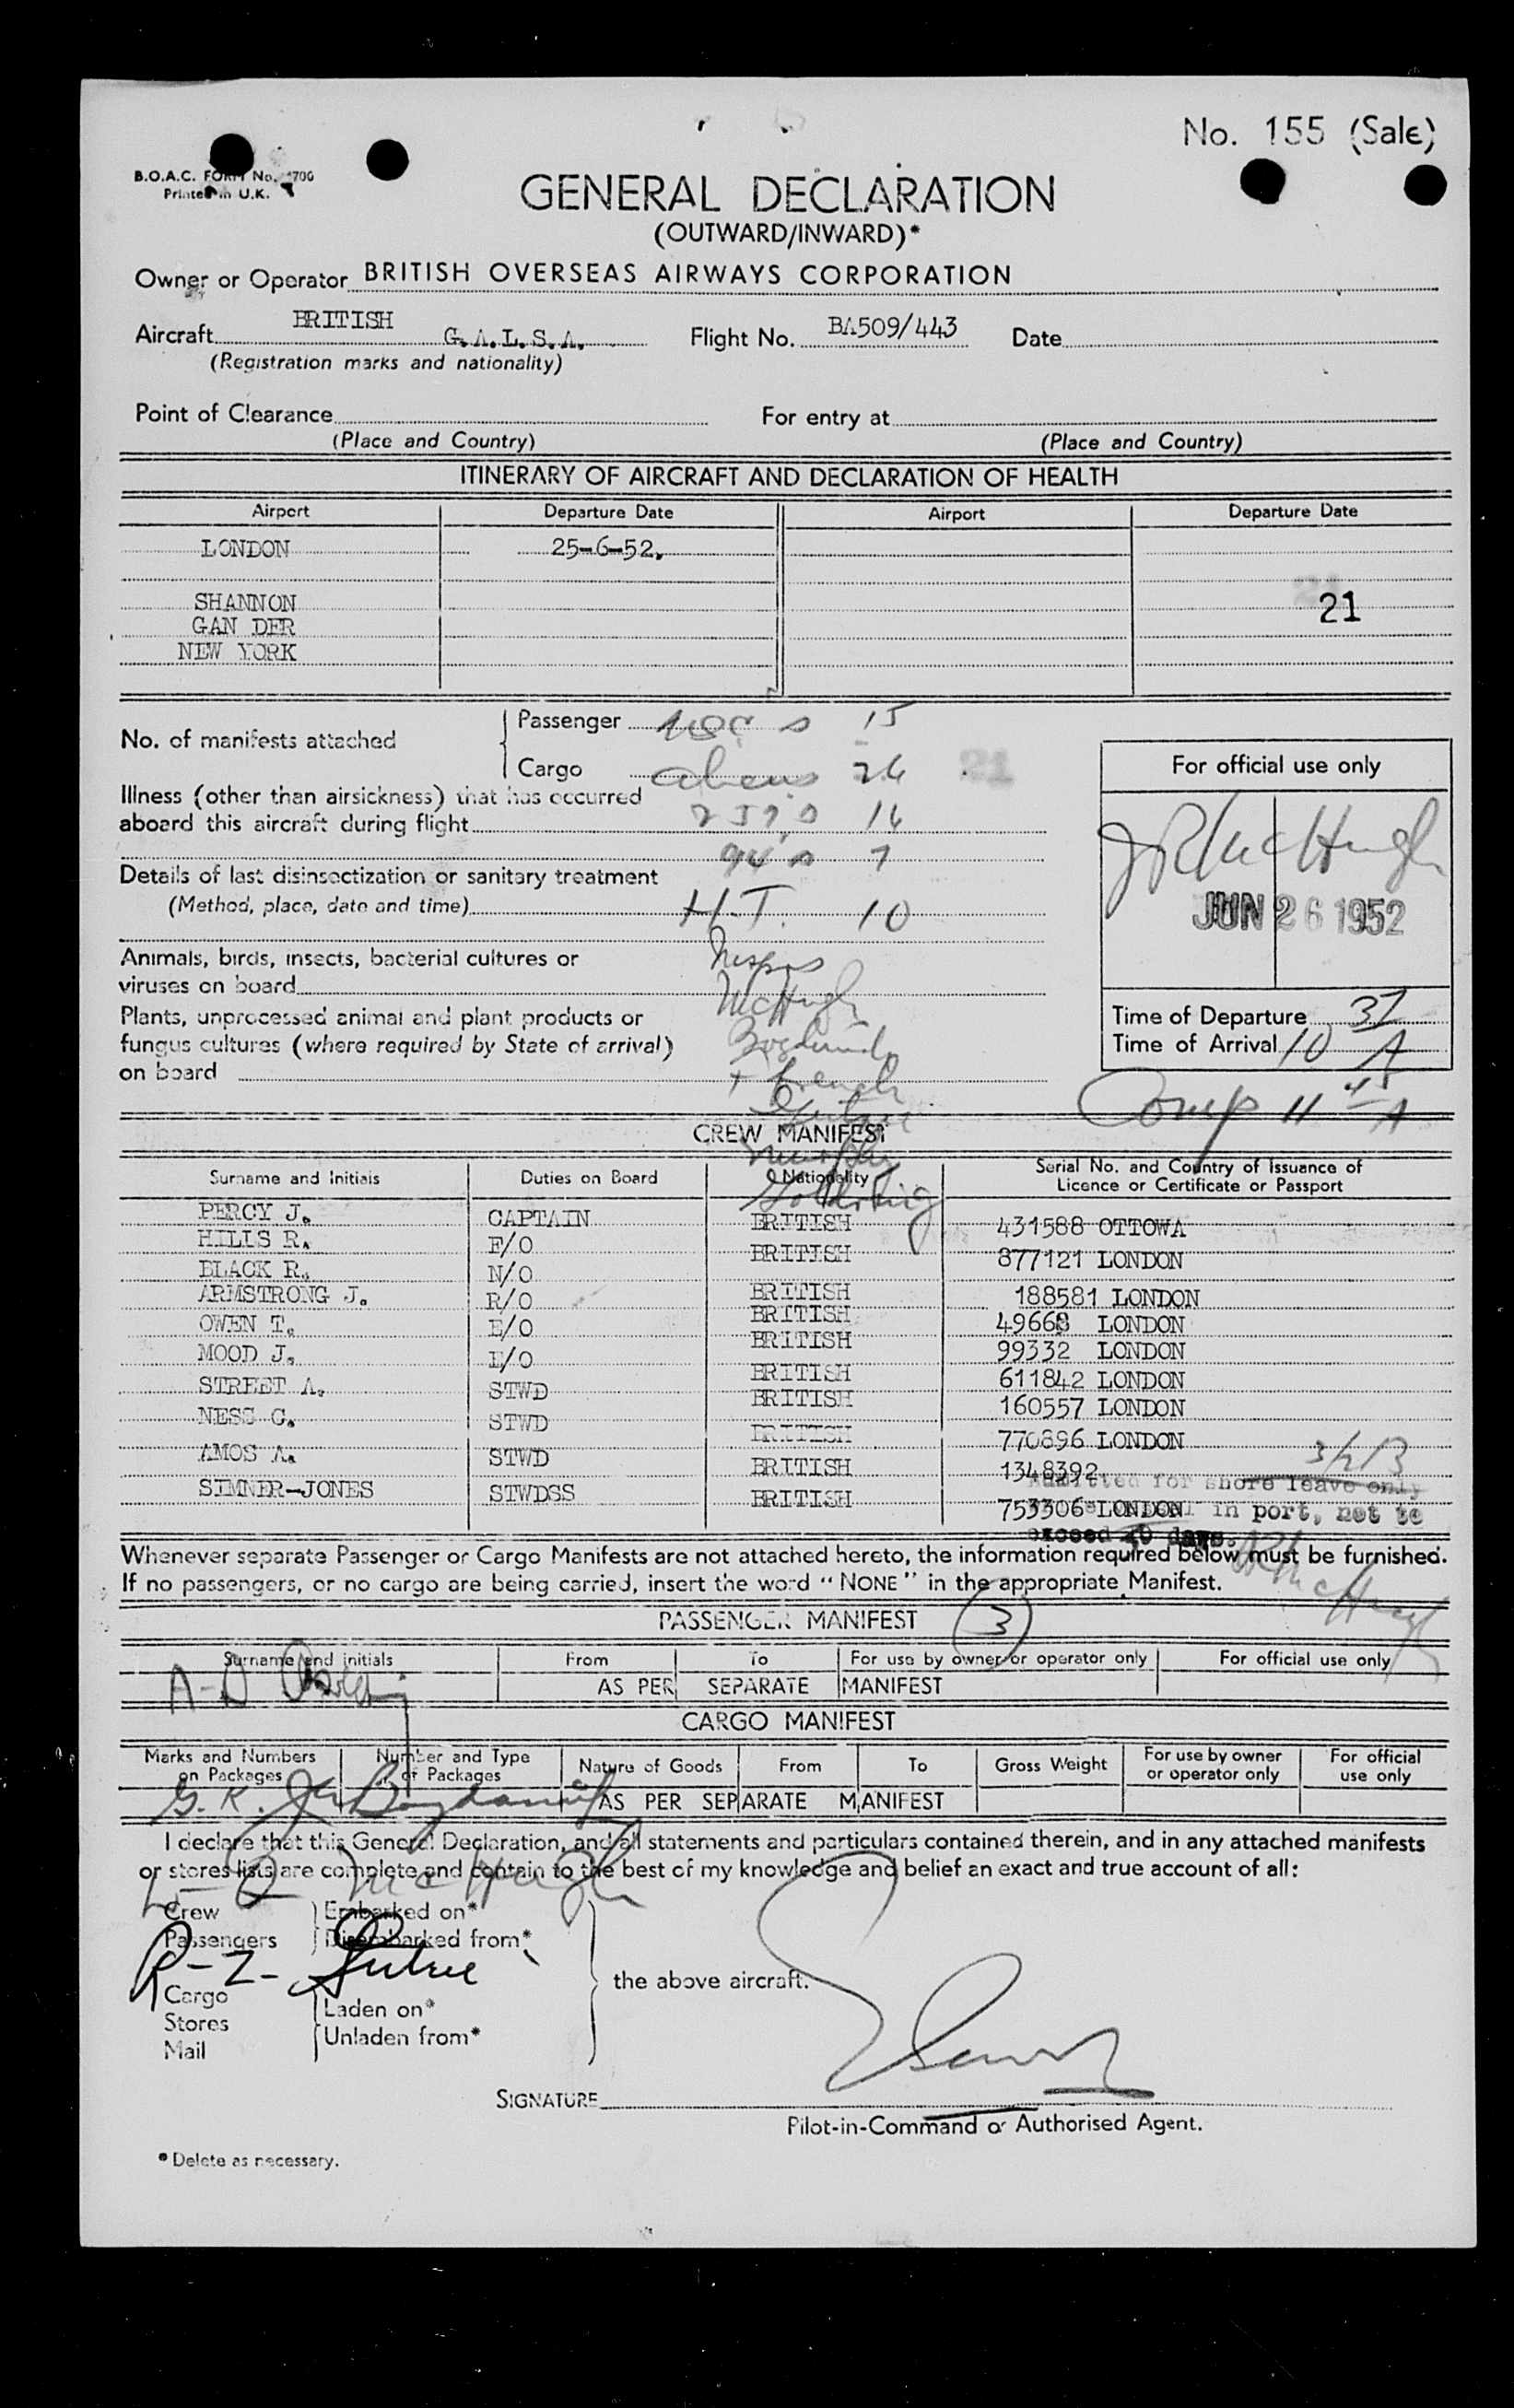 No. 155 (Sale)
B.O.A.C. FORM No. 1700
Printed in U.K.
GENERAL DECLARATION
(OUTWARD/INWARD)*
Owner or Operator BRITISH OVERSEAS AIRWAYS CORPORATION
Aircraft BRITISH G.A.L.S.A. Flight No. BA509/443 Date
(Registration marks and nationality)
Point of Clearance For entry at
(Place and Country) (Place and Country)
ITINERARY OF AIRCRAFT AND DECLARATION OF HEALTH
Airport Departure Date Airport Departure Date
LONDON 25-6-52.
SHANNON 21
GAN DER
NEW YORK
No. of manifests attached
Passenger 15
Cargo aliens 26 21
Illness (other than airsickness) that has occurred
aboard this aircraft during flight 16
7
Details of last disinsectization or sanitary treatment
(Method, place, date and time) H.T. 10
Animals, birds, insects, bacterial cultures or
viruses on board McHugh
Plants, unprocessed animal and plant products or
fungus cultures (where required by State of arrival)
on board
For official use only
JR McHugh
JUN 26 1952
Time of Departure 37
Time of Arrival 10 A
Comp 11 45 A
CREW MANIFEST
Murphy
Surname and Initials Duties on Board Nationality Serial No. and Country of Issuance of
Licence or Certificate or Passport
PERCY J. CAPTAIN BRITISH 431588 OTTOWA
HILLS R. F/O BRITISH 877121 LONDON
BLACK R. N/O BRITISH 188581 LONDON
ARMSTRONG J. R/O BRITISH 49668 LONDON
OWEN T. E/O BRITISH 99332 LONDON
MOOD J. E/O BRITISH 611842 LONDON
STREET A. STWD BRITISH 160557 LONDON
NESS C. STWD BRITISH 770896 LONDON
AMOS A. STWD BRITISH 1348392
SIMNER-JONES STWDSS BRITISH 753306 LONDON
Admitted for shore leave only
in port, not to
exceed days.
Whenever separate Passenger or Cargo Manifests are not attached hereto, the information required below must be furnished.
If no passengers, or no cargo are being carried, insert the word "NONE" in the appropriate Manifest.
JR McHugh
PASSENGER MANIFEST 3
Surname and initials From To For use by owner or operator only For official use only
AS PER SEPARATE MANIFEST
CARGO MANIFEST
Marks and Numbers on Packages Number and Type of Packages Nature of Goods From To Gross Weight For use by owner or operator only For official use only
AS PER SEPARATE MANIFEST
I declare that this General Declaration, and all statements and particulars contained therein, and in any attached manifests
or stores lists are complete and contain to the best of my knowledge and belief an exact and true account of all:
McHugh
Crew Embarked on*
Passengers Disembarked from*
the above aircraft.
Cargo Laden on*
Stores Unladen from*
Mail
SIGNATURE
Pilot-in-Command or Authorised Agent.
* Delete as necessary.